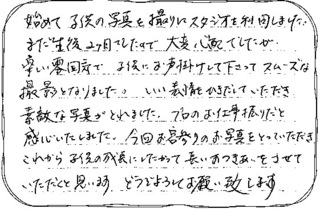 始めて子供の写真を撮りにスタジオを利用しました。
まだ生後2ヶ月でしたので大変心配でしたが
楽しい雰囲気で子供にお声掛けして下さってスムーズな
撮影となりました。いい表情をひきだしていただき
素敵な写真がとれました。プロのお仕事振りだと
感心いたしました。今回お宮参りのお写真をとっていただき
これから子供の成長にしたがって長いおつきあいをさせて
いただくと思います どうぞよろしくお願い致します